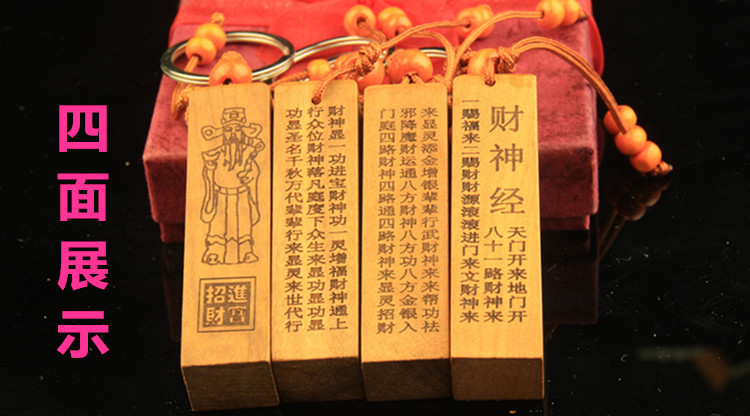 四面展示
招財
進
财神经
天门开来地门开
八十一路财神来
一赐福来二赐财财源滚滚进门来文财神来
来显灵添金增银辈辈行武财神来来帮功祛
邪降魔财运通八方财神八方功八方金银入
门庭四路财神四路通四路财神来显灵招财
财神显一功进宝财神功一灵增福财神通上
行众位财神落凡庭度下众生来显功显功显
功显圣名千秋万代辈辈行来显灵来世代行